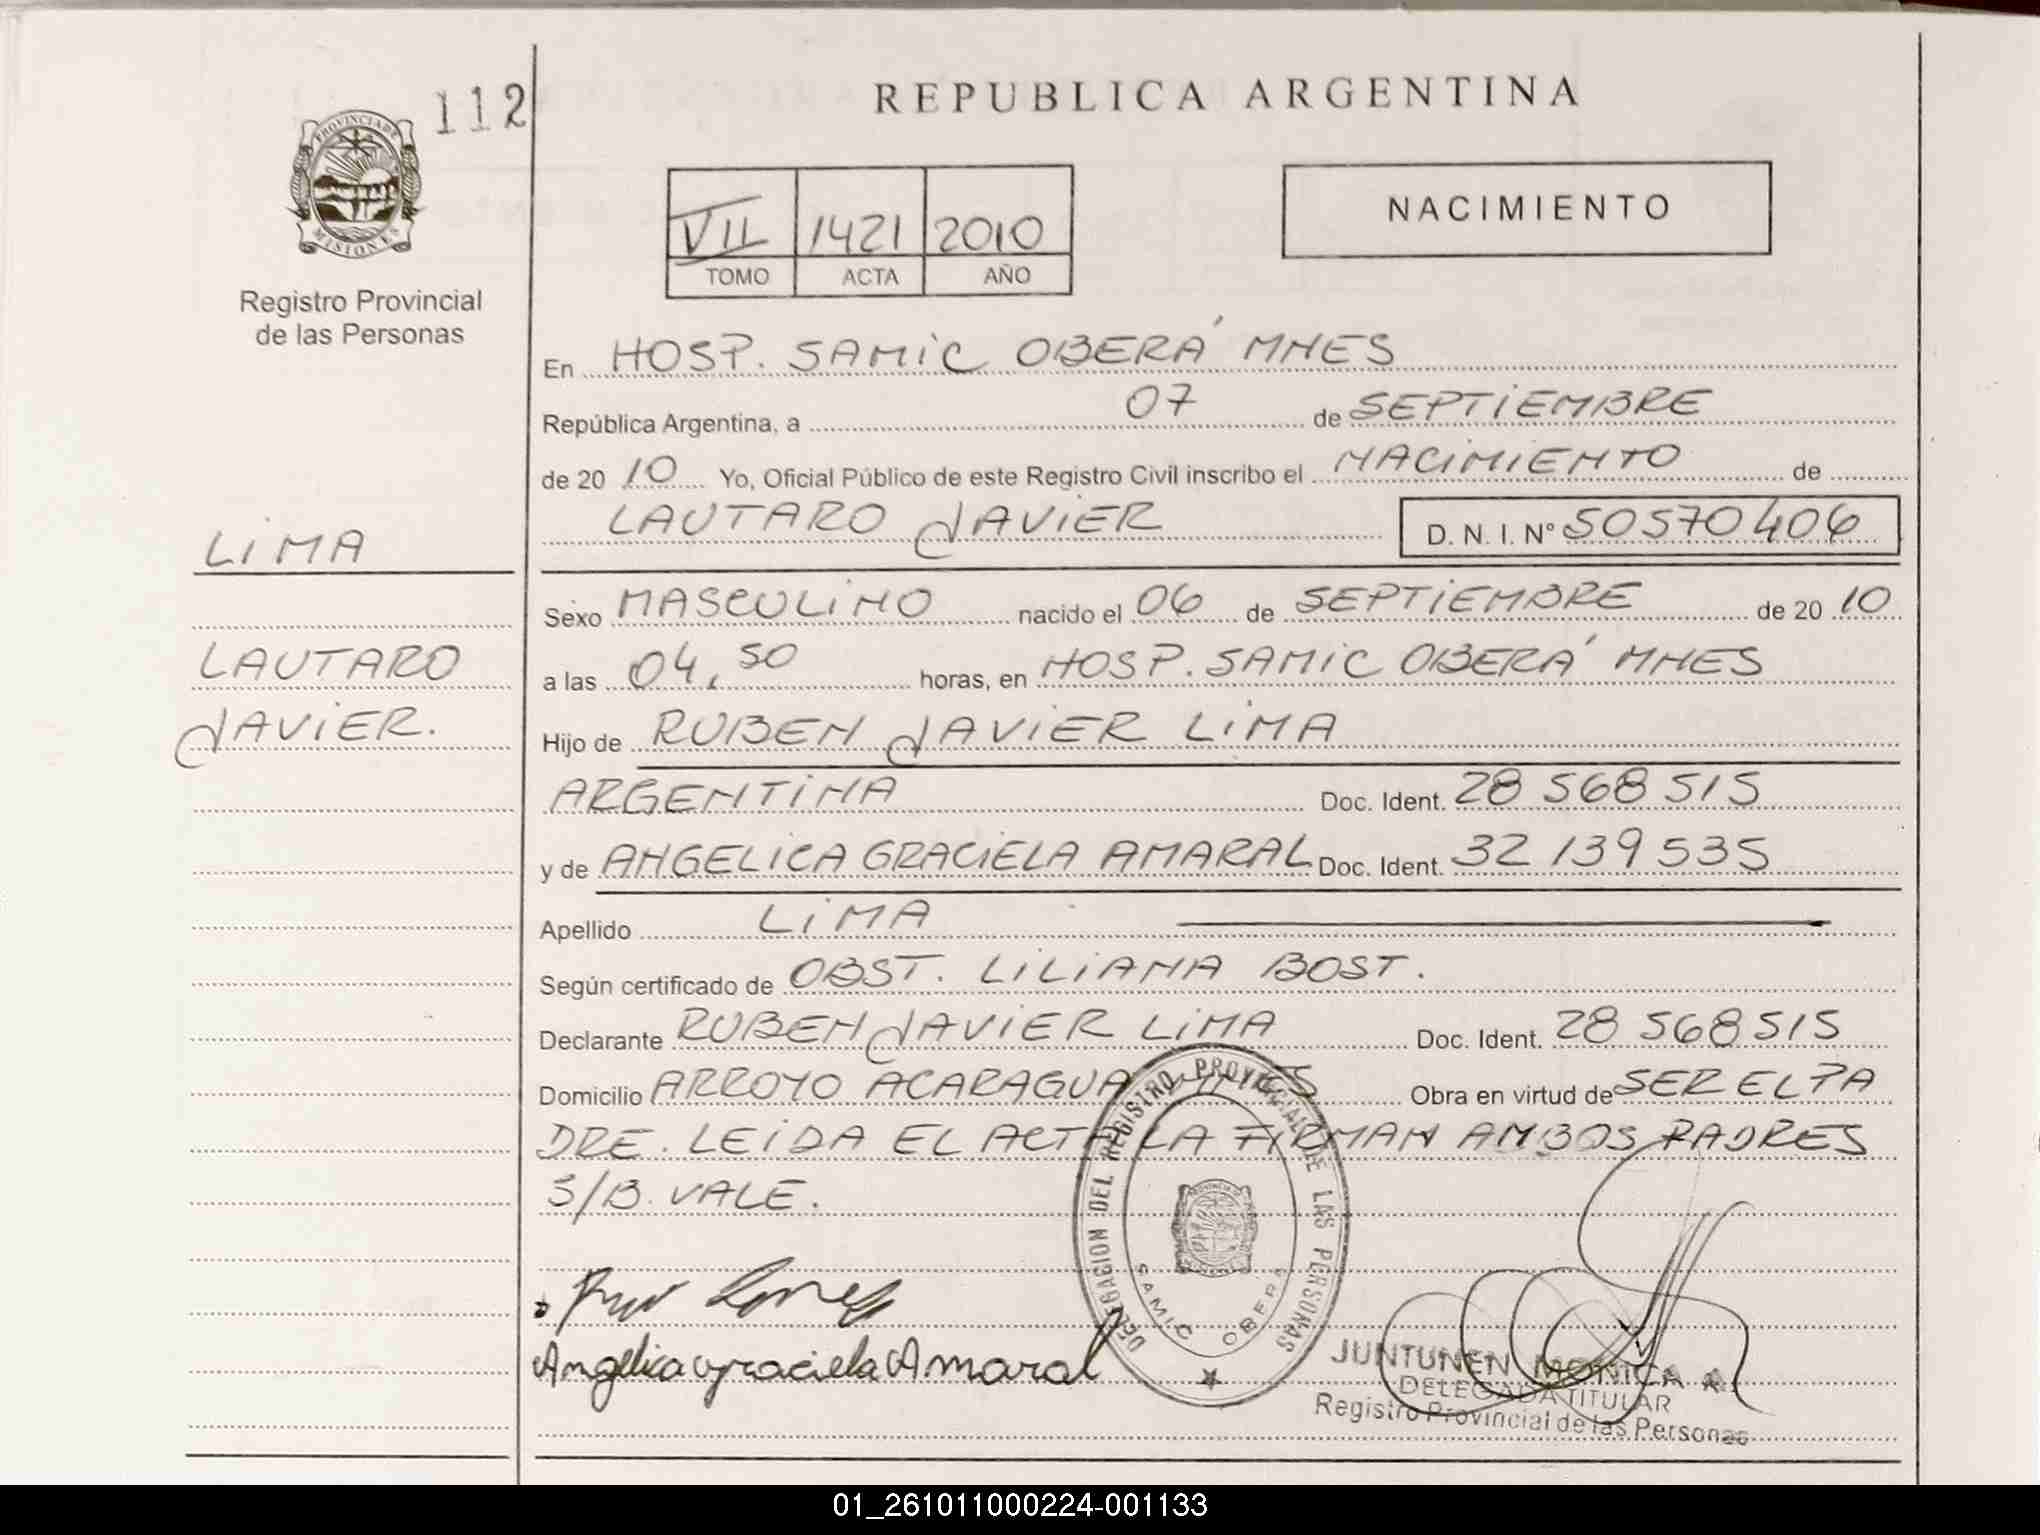 112
PROVINCIA DE
MISIONES
Registro Provincial
de las Personas
LIMA
LAUTARO
JAVIER.
REPUBLICA ARGENTINA
VII 1421 2010
TOMO ACTA AÑO
NACIMIENTO
En HOSP. SAMIC OBERÁ MNES
República Argentina, a 07 de SEPTIEMBRE
de 20 10 Yo, Oficial Público de este Registro Civil inscribo el NACIMIENTO de
LAUTARO JAVIER D. N. I. N° 50570406
Sexo MASCULINO nacido el 06 de SEPTIEMBRE de 20 10
a las 04,50 horas, en HOSP. SAMIC OBERÁ MNES
Hijo de RUBEN JAVIER LIMA
ARGENTINA Doc. Ident. 28 568 515
y de ANGELICA GRACIELA AMARAL Doc. Ident. 32 139 535
Apellido LIMA
Según certificado de OBST. LILIANA BOST.
Declarante RUBEN JAVIER LIMA Doc. Ident. 28 568 515
Domicilio ARROYO ACARAGUA Obra en virtud de SER EL PA
DRE. LEIDA EL ACTA LA FIRMAN AMBOS PADRES
S/B. VALE.
Angelica graciela Amaral
DELEGACION DEL REGISTRO PROVINCIAL DE LAS PERSONAS
SAMIC OBERA
JUNTUNEN MONICA A.
DELEGADA TITULAR
Registro Provincial de las Personas
01_261011000224-001133